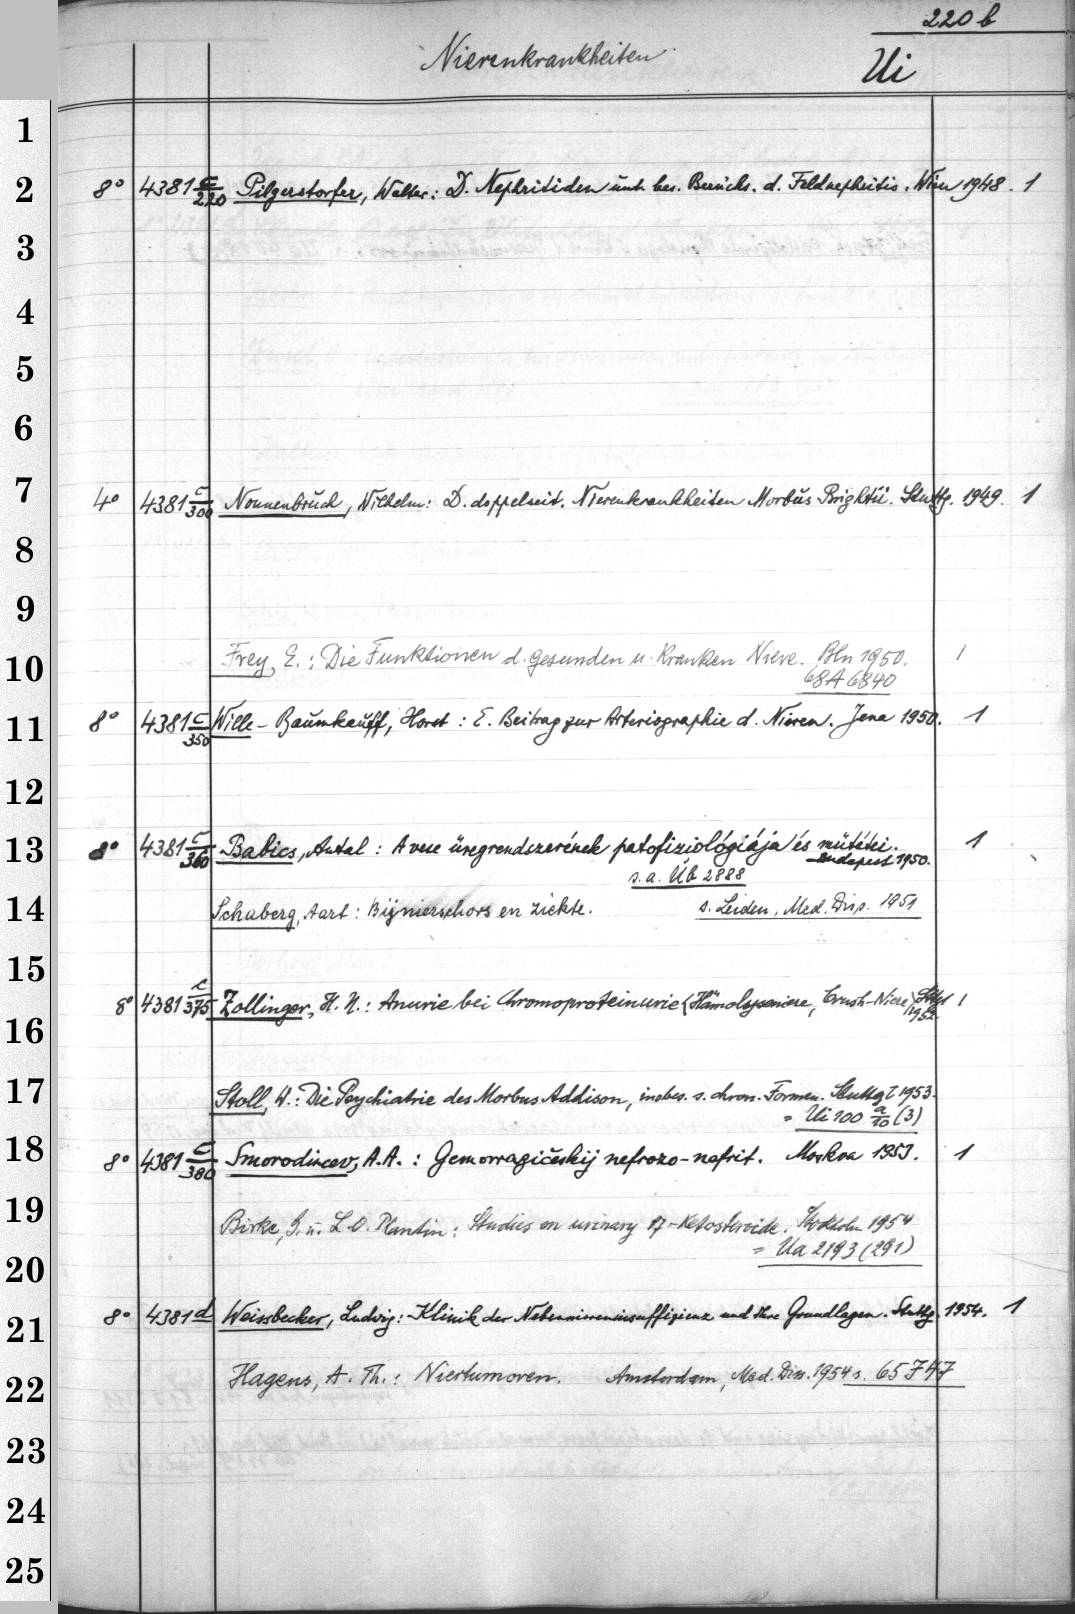 220 b
Nierenkrankheiten
Ui
1
2 8° 4381 c/220 Pilgerstorfer, Walter: D. Nephritiden unt. bes. Berücks. d. Feldnephritis. Wien 1948. 1
3
4
5
6
7 4° 4381 c/300 Nonnenbruch, Wilhelm: D. doppelseit. Nierenkrankheiten Morbus Brightii. Stuttg. 1949. 1
8
9
10 Frey, E.: Die Funktionen d. gesunden u. kranken Niere. Bln 1950. 1
68A6840
11 8° 4381 c/350 Wille-Baumkauff, Horst: E. Beitrag zur Arteriographie d. Nieren. Jena 1950. 1
12
13 8° 4381 c/360 Babics, Antal: A vese üregrendszerének patofiziológiája és mütétei. 1
Budapest 1950.
s. a. Üb 2888
14 Schaberg, Aart: Bijnierschors en ziekte. s. Leiden, Med. Diss. 1951
15
8° 4381 c/375 Zollinger, H. U.: Anurie bei Chromoproteinurie (Hämolyseniere, Crush-Niere) Stuttg 1
1952.
16
17 Stoll, W.: Die Psychiatrie des Morbus Addison, insbes. s. chron. Formen. Stuttgt 1953.
= Ui 100 a/10 (3)
18 8° 4381 c/380 Smorodincev, A. A.: Gemorragičeskij nefrozo-nefrit. Moskva 1953. 1
19 Birke, G. u. L. O. Plantin: Studies on urinary 17-Ketosteroide. Stockholm 1954
= Ua 2193 (291)
20
21 8° 4381 d Weissbecker, Ludwig: Klinik der Nebenniereninsuffizienz und ihre Grundlagen. Stuttg. 1954. 1
22 Hagens, A. Th.: Niertumoren. Amsterdam, Med. Diss. 1954 s. 65 747
23
24
25